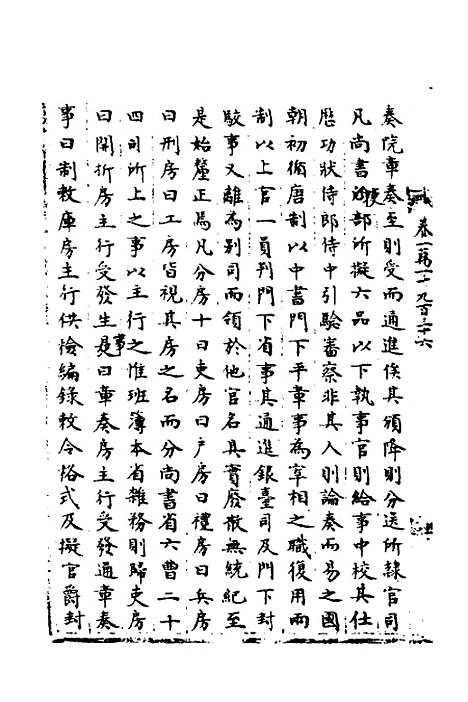 卷一萬一千九百三十六
奏院章奏至則受而通進俟其頒降則分送所隸官司
凡尚書吏部所擬六品以下執事官則給事中校其仕
歷功狀侍郎侍中引驗審察非其人則論奏而易之國
朝初循唐制以中書門下平章事為宰相之職復用兩
制以上官一員判門下省事其通進銀臺司及門下封
駁事又離為别司而領於他官名具實廢散無統紀至
是始釐正焉凡分房十曰吏房曰户房曰禮房曰兵房
曰刑房曰工房皆視其房之名而分尚書省六曹二十
四司所上之事以主行之惟班簿本省雜務則歸吏房
曰開拆房主行受發生事是曰章奏房主行受發通章奏
事曰制敕庫房主行供檢編錄敕令格式及擬官爵封